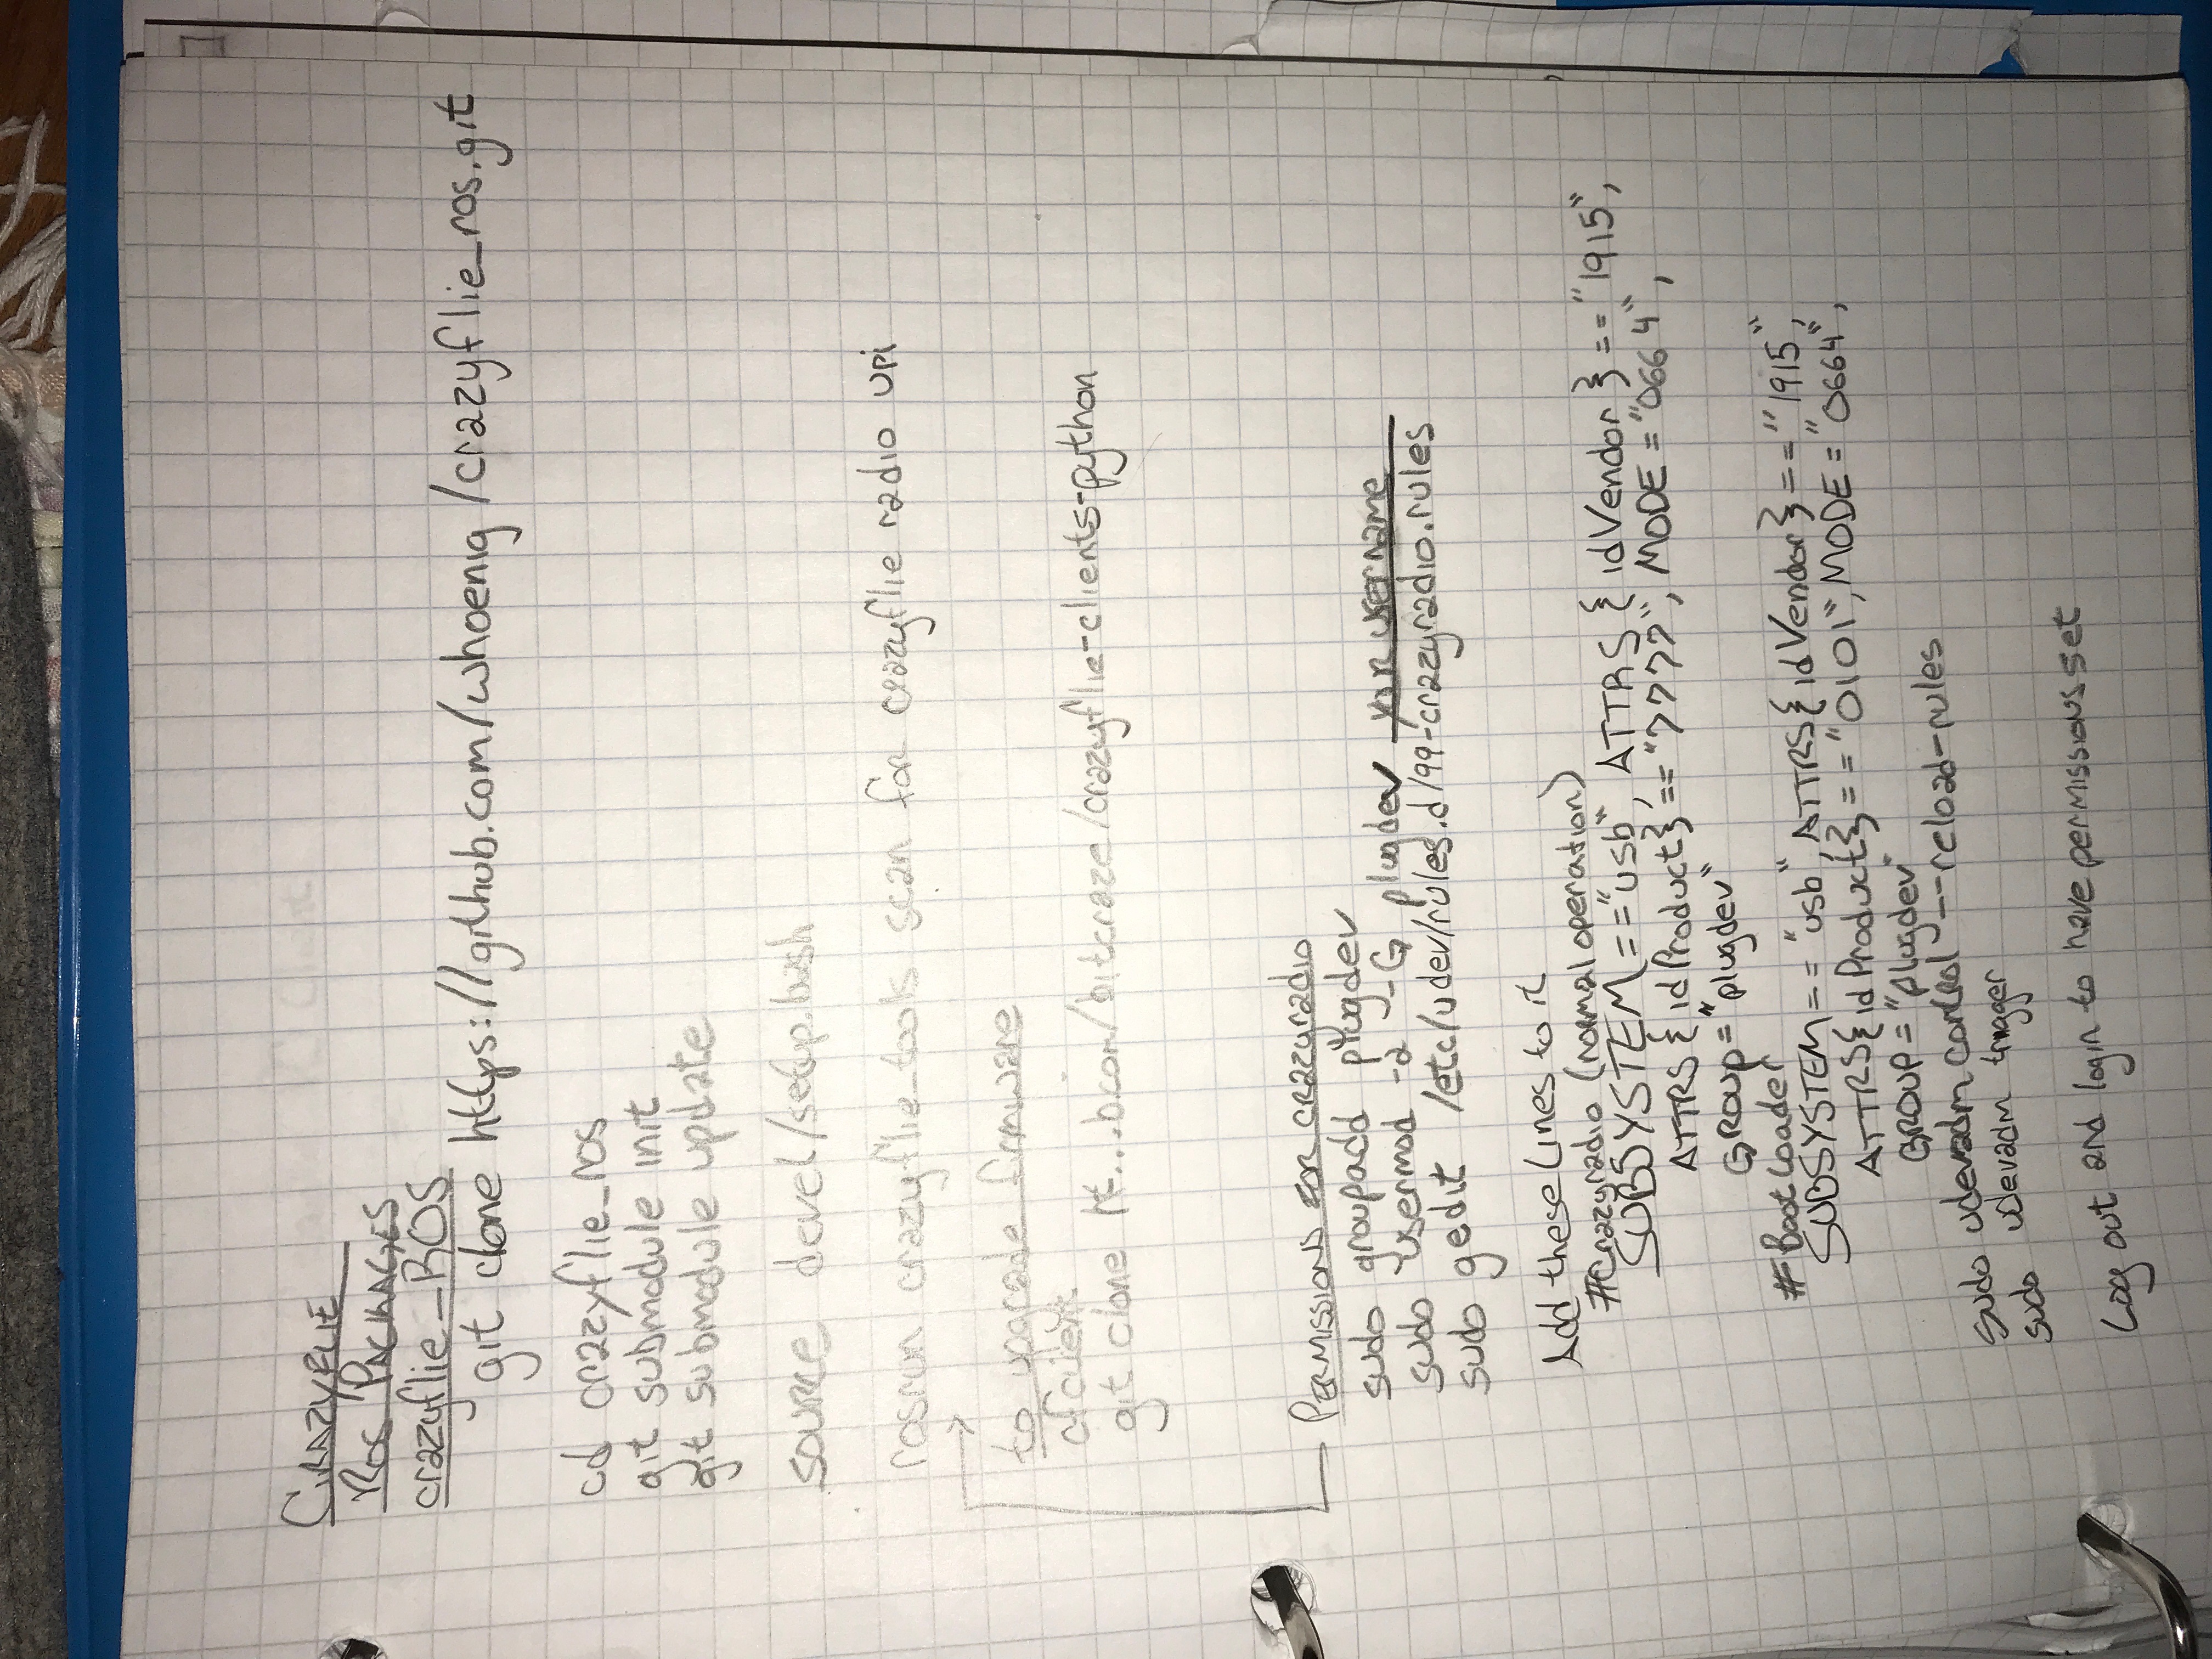 CRAZYFLIE
ROS PACKAGES
crazyflie_ROS
git clone https://github.com/whoenig/crazyflie_ros.git
cd crazyflie_ros
git submodule init
git submodule update
source devel/setup.bash
rosrun crazyflie_tools scan for crazyflie radio uri
to upgrade firmware
cfclient
git clone ht...b.com/bitcraze/crazyflie-clients-python
PERMISSIONS FOR crazyradio
sudo groupadd plugdev
sudo usermod -a -G plugdev your username
sudo gedit /etc/udev/rules.d/99-crazyradio.rules
Add these lines to it
#Crazyradio (normal operation)
SUBSYSTEM=="usb", ATTRS{idVendor}=="1915",
ATTRS{idProduct}=="7777", MODE="0664",
GROUP="plugdev"
#Bootloader
SUBSYSTEM=="usb", ATTRS{idVendor}=="1915",
ATTRS{idProduct}=="0101", MODE="0664",
GROUP="plugdev"
sudo udevadm control --reload-rules
sudo udevadm trigger
Log out and login to have permissions set